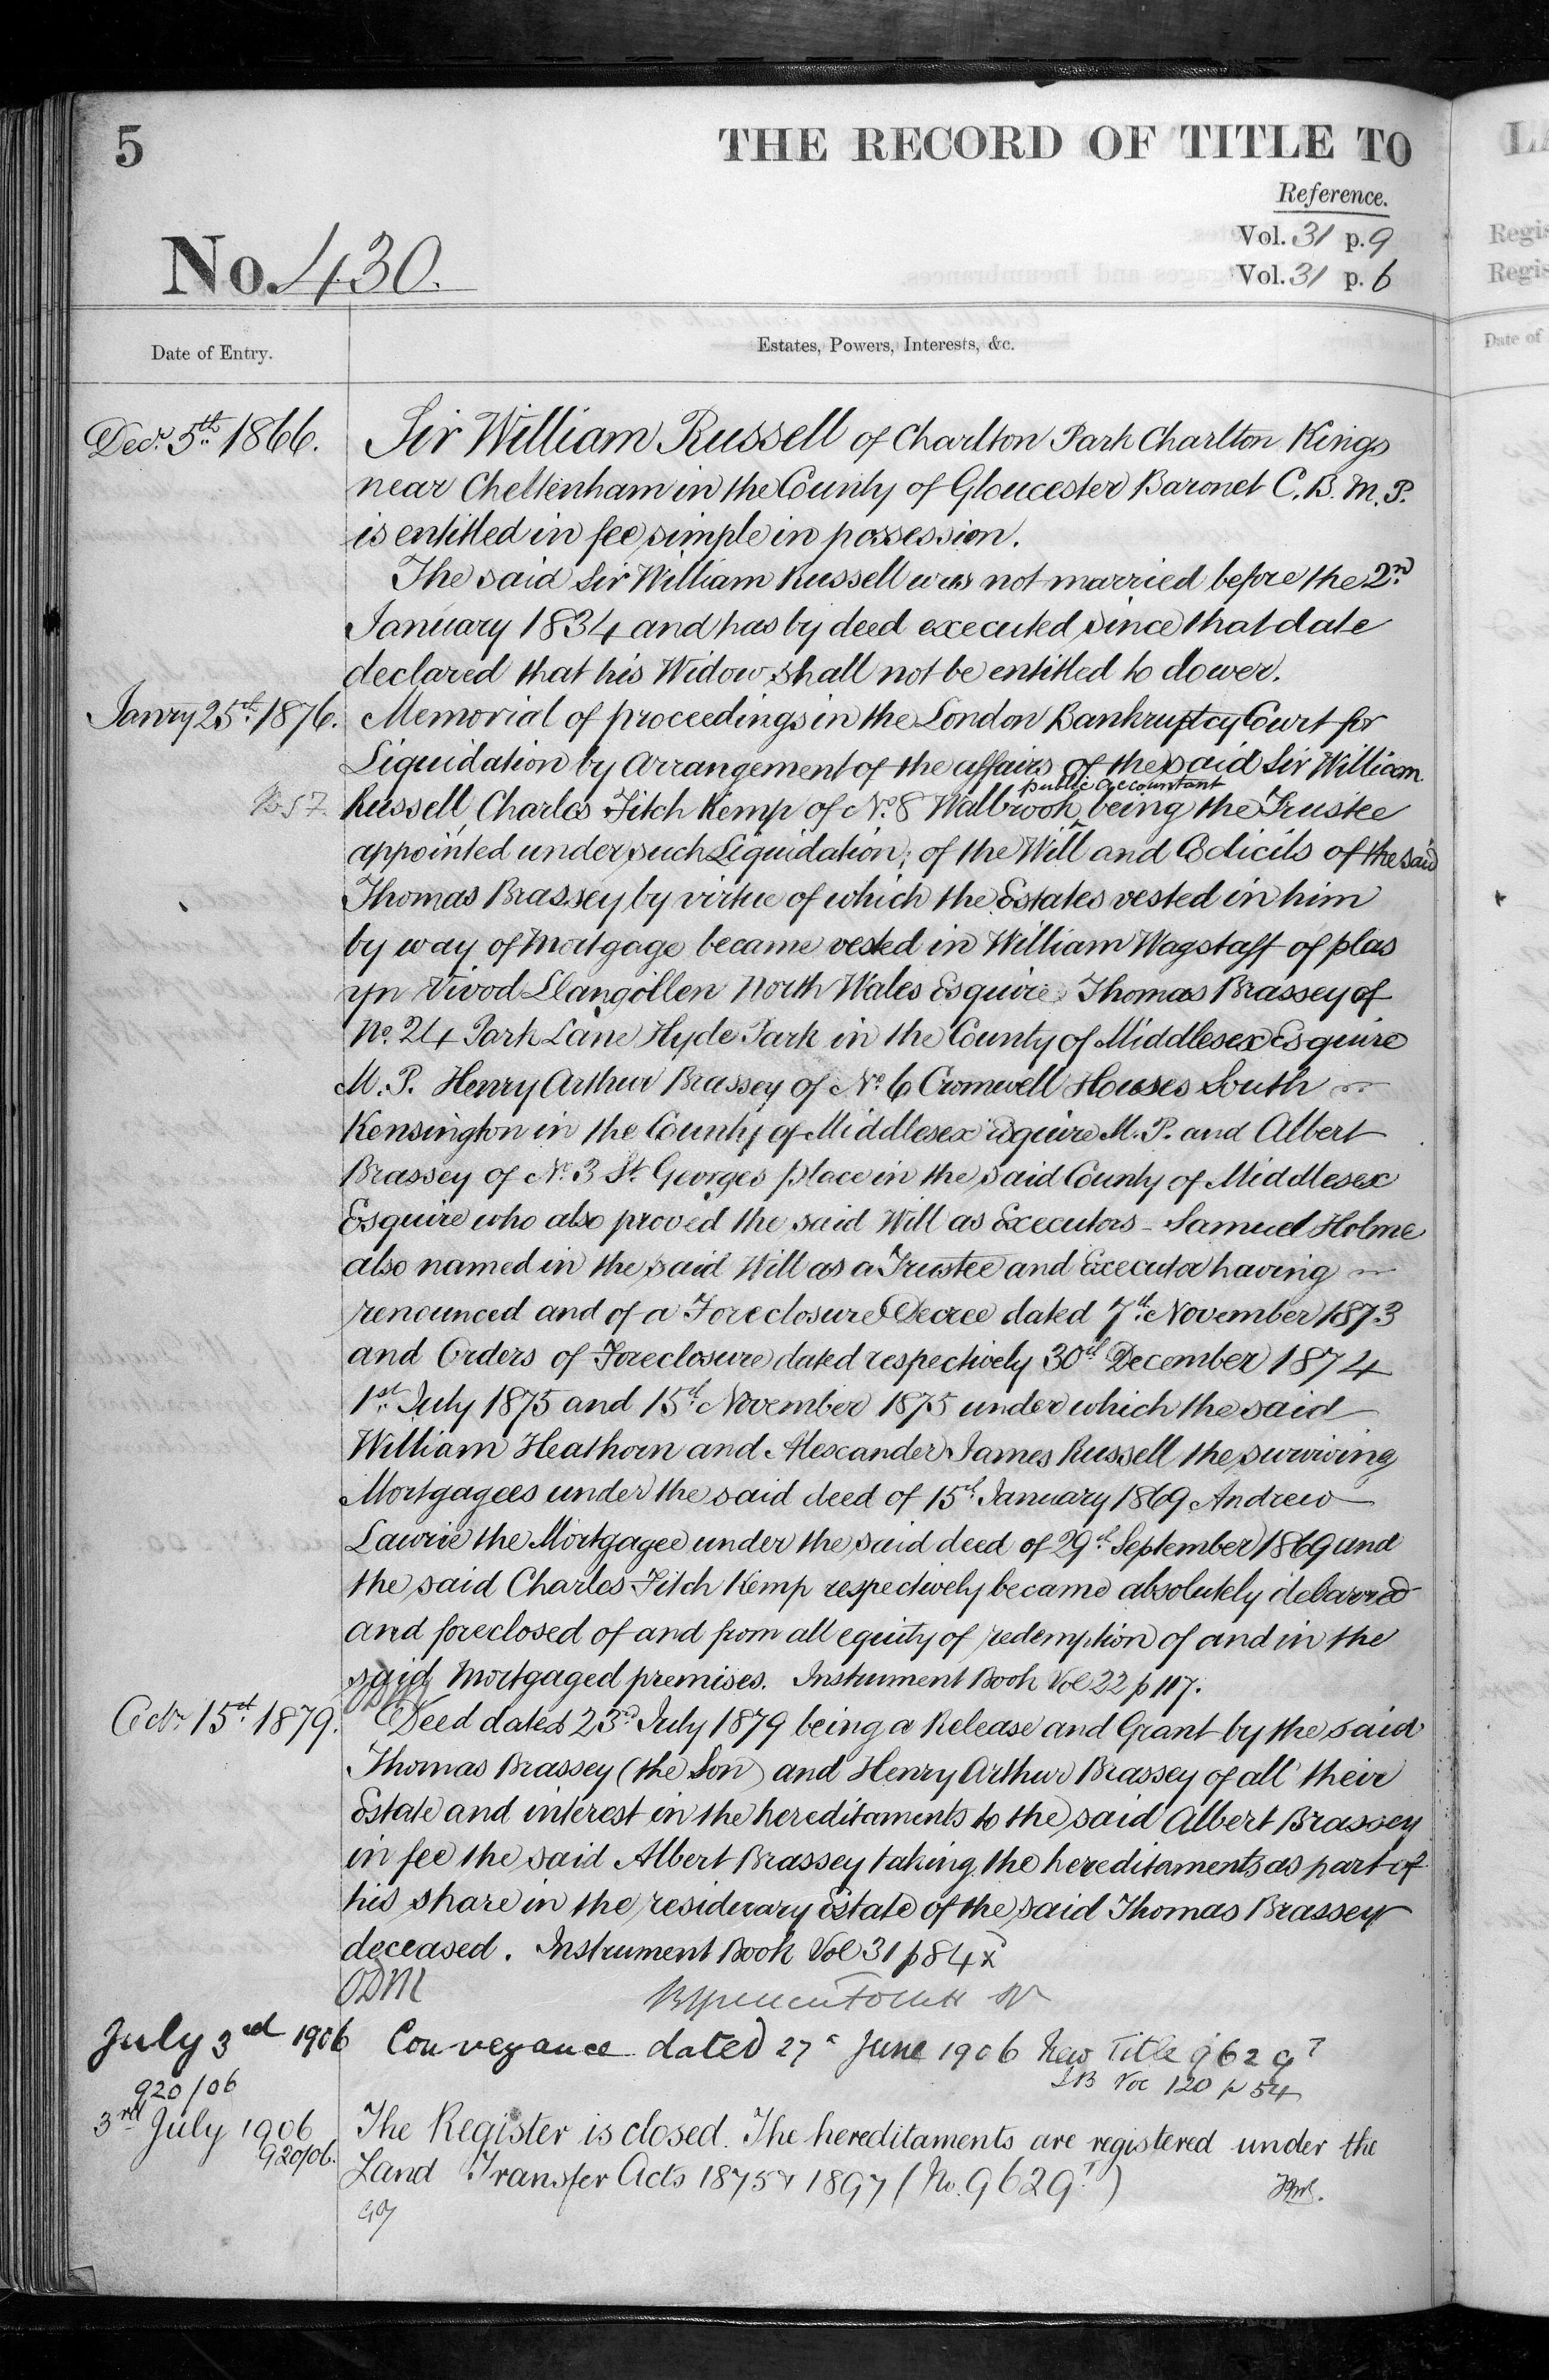 5
THE RECORD OF TITLE TO
Reference.
Vol. 31 p. 9
Vol. 31 p. 6
No. 430.
Date of Entry.
Estates, Powers, Interests, &c.
Decr. 5th 1866.
Sir William Russell of Charlton Park Charlton Kings
near Cheltenham in the County of Gloucester Baronet C. B. M. P.
is entitled in fee simple in possession.
The said Sir William Russell was not married before the 2nd
January 1834 and has by deed executed since that date
declared that his Widow shall not be entitled to dower.
Janry 25th 1876.
Memorial of proceedings in the London Bankruptcy Court for
Liquidation by Arrangement of the affairs of the said Sir William
public accountant
Russell, Charles Fitch Kemp of No. 8 Walbrook ‸ being the Trustee
appointed under such Liquidation; of the Will and Codicils of the said
Thomas Brassey by virtue of which the Estates vested in him
by way of Mortgage became vested in William Wagstaff of plas
yn Vivod Llangollen North Wales Esquire Thomas Brassey of
No. 24 Park Lane Hyde Park in the County of Middlesex Esquire
M. P. Henry Arthur Brassey of No. 6 Cromwell Houses South
Kensington in the County of Middlesex Esquire M. P. and Albert
Brassey of No. 3 St. Georges place in the said County of Middlesex
Esquire who also proved the said Will as Executors – Samuel Holme
also named in the said Will as a Trustee and Executor having
renounced and of a Foreclosure Decree dated 7th November 1873
and Orders of Foreclosure dated respectively 30th December 1874
1st July 1875 and 15th November 1875 under which the said
William Heathorn and Alexander James Russell the surviving
Mortgagees under the said deed of 15th January 1869 Andrew
Lawrie the Mortgagee under the said deed of 29th September 1869 and
the said Charles Fitch Kemp respectively became absolutely debarred
and foreclosed of and from all equity of redemption of and in the
said mortgaged premises. Instrument Book Vol 22 p 117.
Octr. 15th 1879.
Deed dated 23rd July 1879 being a Release and Grant by the said
Thomas Brassey (the Son) and Henry Arthur Brassey of all their
Estate and interest in the hereditaments to the said Albert Brassey
in fee the said Albert Brassey taking the hereditaments as part of
his share in the residuary Estate of the said Thomas Brassey
deceased. Instrument Book Vol 31 p 84
July 3rd 1906
920/06
Conveyance dated 27th June 1906 New Title 9629T
IB Vol 120 p 54
3rd July 1906
920/06.
The Register is closed. The hereditaments are registered under the
Land Transfer Acts 1875 & 1897 (No. 9629T.)